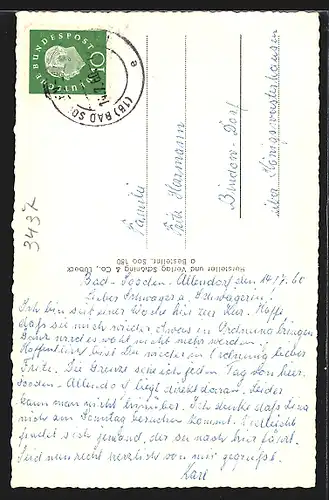 DEUTSCHE BUNDESPOST
(16) BAD SO
a
Familie
Fritz Hannmann
Bindow-Dorf
über Königswusterhausen
3437
Hersteller und Verlag Schöning & Co., Lübeck
Bestellnr. Soo 180
Bad-Sooden-Allendorf den 14.7.60
Lieber Schwager u. Schwägerin!
Ich bin seit einer Woche hier zur Kur. Hoffe
dafs sie mich wieder etwas in Ordnung bringen.
Ganz wird es wohl nicht mehr werden.
Hoffentlich bist Du wieder in Ordnung lieber
Fritz. Die Grenze sehe ich jeden Tag von hier.
Sooden-Allendorf liegt direkt daran. Leider
kann man nicht hinüber. Ich denke dafs Lina
mich am Sonntag besuchen kommt. Vielleicht
findet sich jemand, der sie nach hier fährt.
Seid nun recht herzlich von mir gegrüfst.
Karl